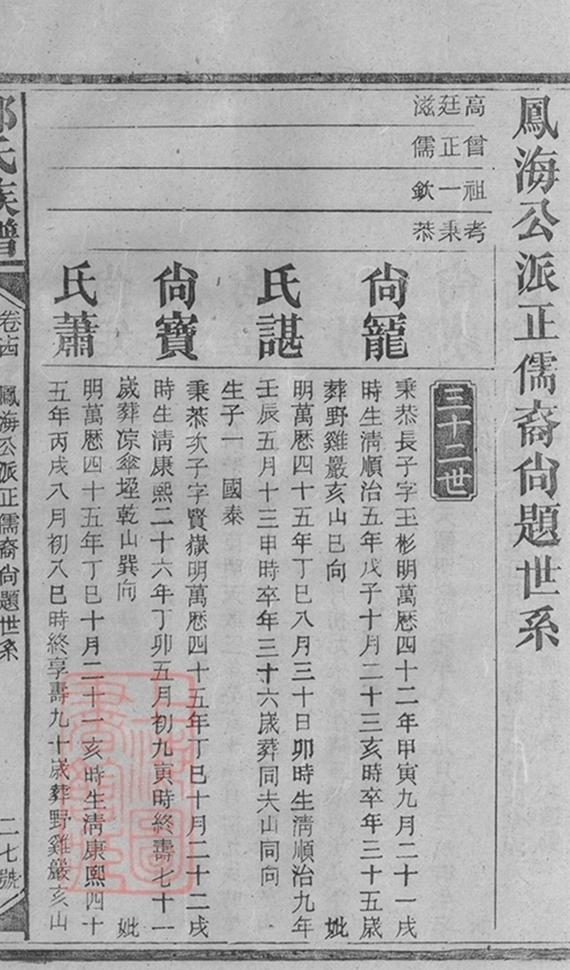 鳳海公派正儒裔尙題世系
高曾祖考
廷正一秉
滋儒欽恭
三十二世
尙寵
秉恭長子字王彬明萬曆四十二年甲寅九月二十一戌
時生淸順治五年戊子十月二十三亥時卒年三十五歲
葬野雞嚴亥山巳向 妣
氏諶
明萬曆四十五年丁巳八月三十日卯時生淸順治九年
壬辰五月十三甲時卒年三十六歲葬同夫山同向
生子一 國泰
尙寶
秉恭次子字賢嶽明萬曆四十五年丁巳十月二十二戌
時生淸康熙二十六年丁卯五月初九寅時終壽七十一
歲葬凉傘垤乾山巽向 妣
氏蕭
明萬曆四十五年丁巳十月二十一亥時生淸康熙四十
五年丙戌八月初八巳時終享壽九十歲葬野雞嚴亥山
氏族譜
卷十四 鳳海公派正儒裔尙題世系 二七號